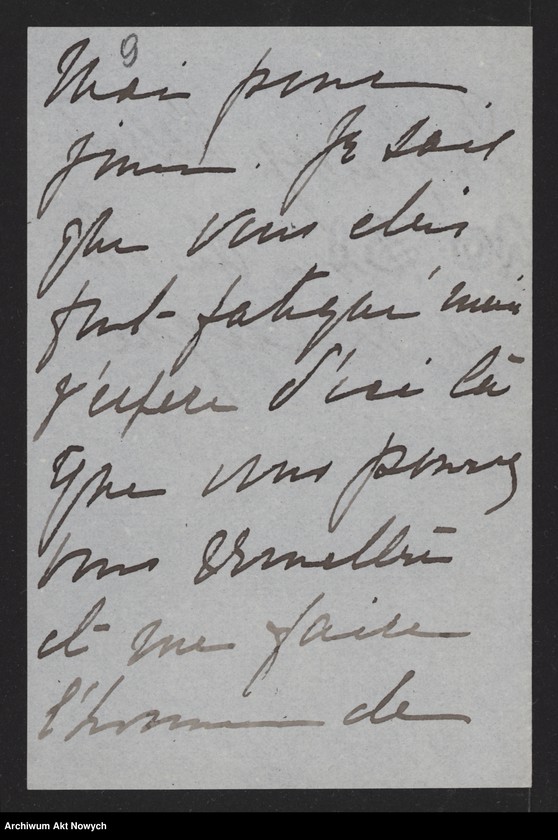 9
Mai pour
jouer. Je sais
que vous etiez
fort fatigué mais
j'espere d'ici là
que vous pourrez
vous remettre
et me faire
l'honneur de
Archiwum Akt Nowych